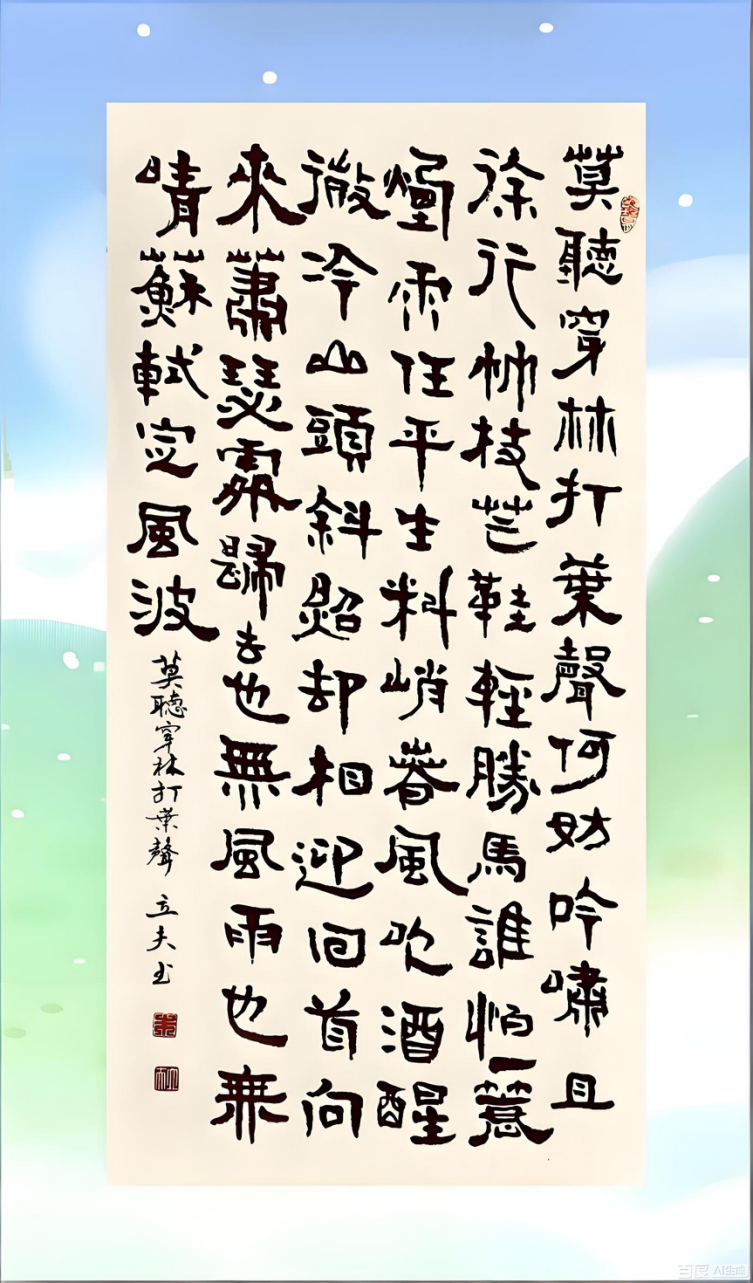 莫聽穿林打葉聲何妨吟嘯且
徐行竹杖芒鞋輕勝馬誰怕一蓑
煙雨任平生料峭春風吹酒醒
微冷山頭斜照却相迎回首向
來蕭瑟處歸去也無風雨也無
晴蘇軾定風波
莫聽穿林打葉聲 立夫书
百度 AI生成